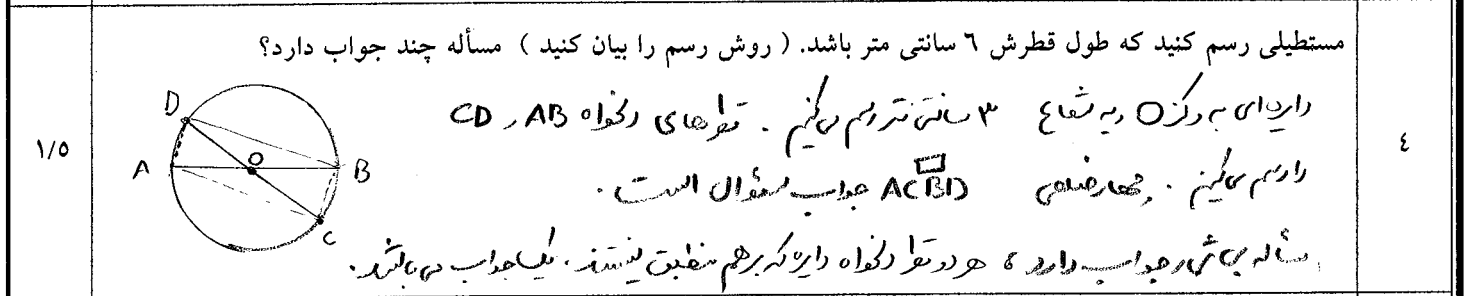 مستطیلی رسم کنید که طول قطرش ٦ سانتی متر باشد. ( روش رسم را بیان کنید ) مسأله چند جواب دارد؟
٤
دایره‌ای به مرکز O و به شعاع ۳ سانتی متر رسم می‌کنیم . قطرهای دلخواه AB و CD
را رسم می‌کنیم . چهارضلعی ACBD جواب سؤال است .
مسأله بی شمار جواب دارد ، هر دو قطر دلخواه دایره که بر هم منطبق نیستند ، یک جواب می‌باشند .
١/٥
D
A
O
B
C